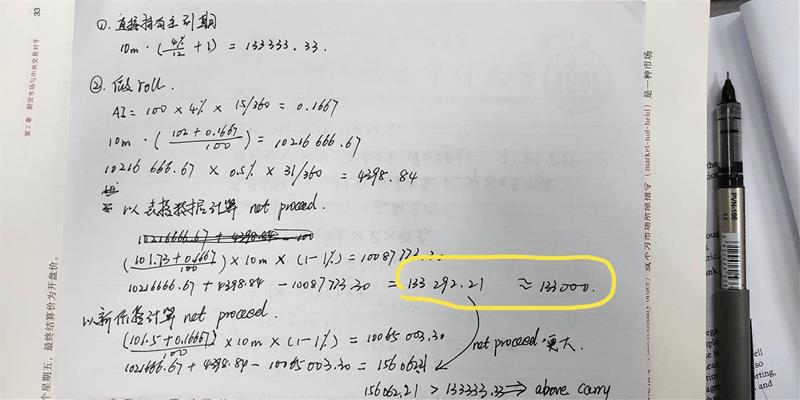 33
第2章 期货市场与中央交易对手
个星期五，最终结算价为开盘价。
①. 直接持有至到期
10m · (4%/12 + 1) = 133333.33.
②. roll.
AI = 100 × 4% × 15/360 = 0.1667
10m · (102 + 0.1667/100) = 10216666.67
10216666.67 × 0.5% × 31/360 = 4398.84
以表格数据计算 net proceed.
10216666.67 + 4398.84 - 100
(101.73 + 0.1667/100) × 10m × (1-1%) = 10087773.30
10216666.67 + 4398.84 - 10087773.30 = 133292.21 ≈ 133000.
以新价格计算 net proceed.
(101.5 + 0.1667/100) × 10m × (1-1%) = 10065003.30
1021666.67 + 4398.84 - 10065003.30 = 156062.21
net proceed 更大.
156062.21 > 133333.33 ⇒ above carry
或不为市场所限指令（market-not-held）是一种市场
PVN-166